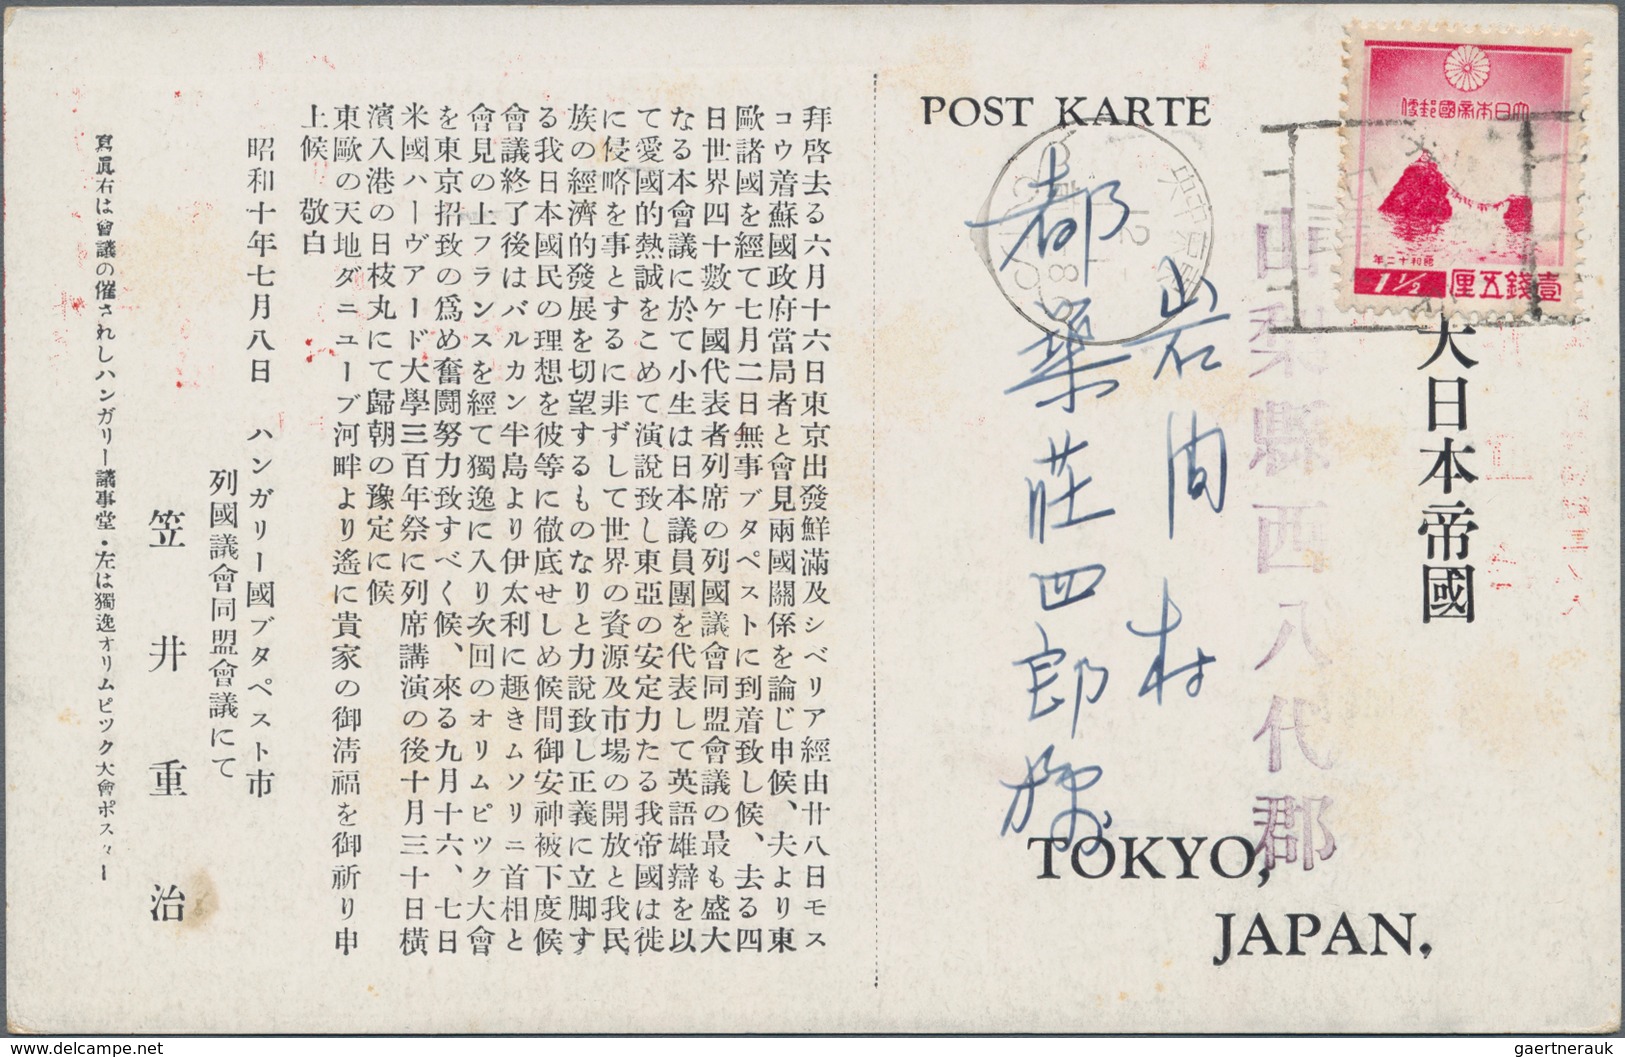 POST KARTE
大日本帝國郵便
昭和十二年
1½
壹錢五厘
大日本帝國
山梨縣西八代郡
岩间村
都築莊四郎様
TOKYO,
JAPAN.
拜啓去る六月十六日東京出發鮮滿及シベリア經由廿八日モス
コウ着蘇國政府當局者と會見兩國關係を論じ申候、夫より東
歐諸國を經て七月二日無事ブタペストに到着致し候、去る四
日世界四十數ケ國代表者列席の列國議會同盟會議の最も盛大
なる本會議に於て小生は日本議員團を代表して英語雄辯を以
て愛國的熱誠をこめて演說致し東亞の安定力たる我帝國は徙
に侵略を事とするに非ずして世界の資源及市場の開放と我民
族の經濟的發展を切望するものなりと力說致し正義に立脚す
る我日本國民の理想を彼等に徹底せしめ候間御安神被下度候
會議終了後はバルカン半島より伊太利に趣きムソリニ首相と
會見の上フランスを經て獨逸に入り次回のオリムピツク大會
を東京招致の爲め奮鬪努力致すべく候、來る九月十六、七日
米國ハーヴアード大學三百年祭に列席講演の後十月三十日橫
濱入港の日枝丸にて歸朝の豫定に候
東歐の天地ダニユーブ河畔より遙に貴家の御淸福を御祈り申
上候　敬白
昭和十年七月八日　ハンガリー國ブタペスト市
列國議會同盟會議にて
笠井重治
寫眞右は會議の催されしハンガリー議事堂・左は獨逸オリムピツク大會ポスター
gaertnerauk
(c) www.delcampe.net